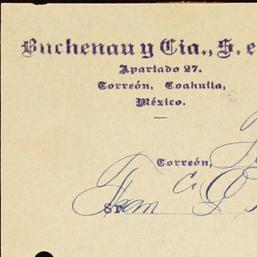 Buchenau y Cia., S. e
Apartado 27.
Torreón, Coahuila,
México.
Torreón,
Sr